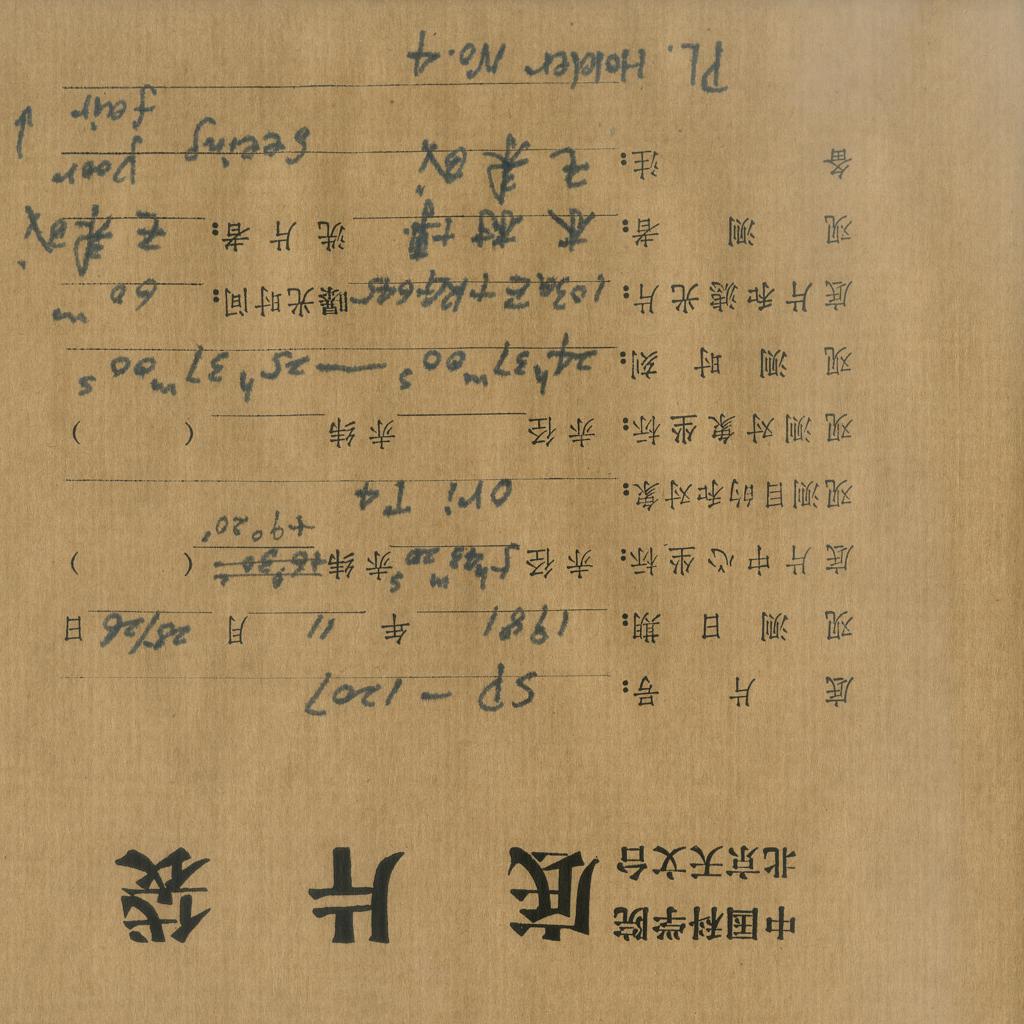 中国科学院
北京天文台
底片袋
底片号: SP-1207
观测日期: 1981年 11月 25/26日
底片中心坐标: 赤径 5h43m20s 赤纬 +9°20' ( )
观测目的和对象: Ori T4
观测对象坐标: 赤径 赤纬 ( )
观测时刻: 24h37m00s — 25h37m00s
底片和滤光片: 103aE+RG645 曝光时间: 60m
观测者: 洗片者:
备注: Seeing poor
↓ fair
PL. Holder No.4